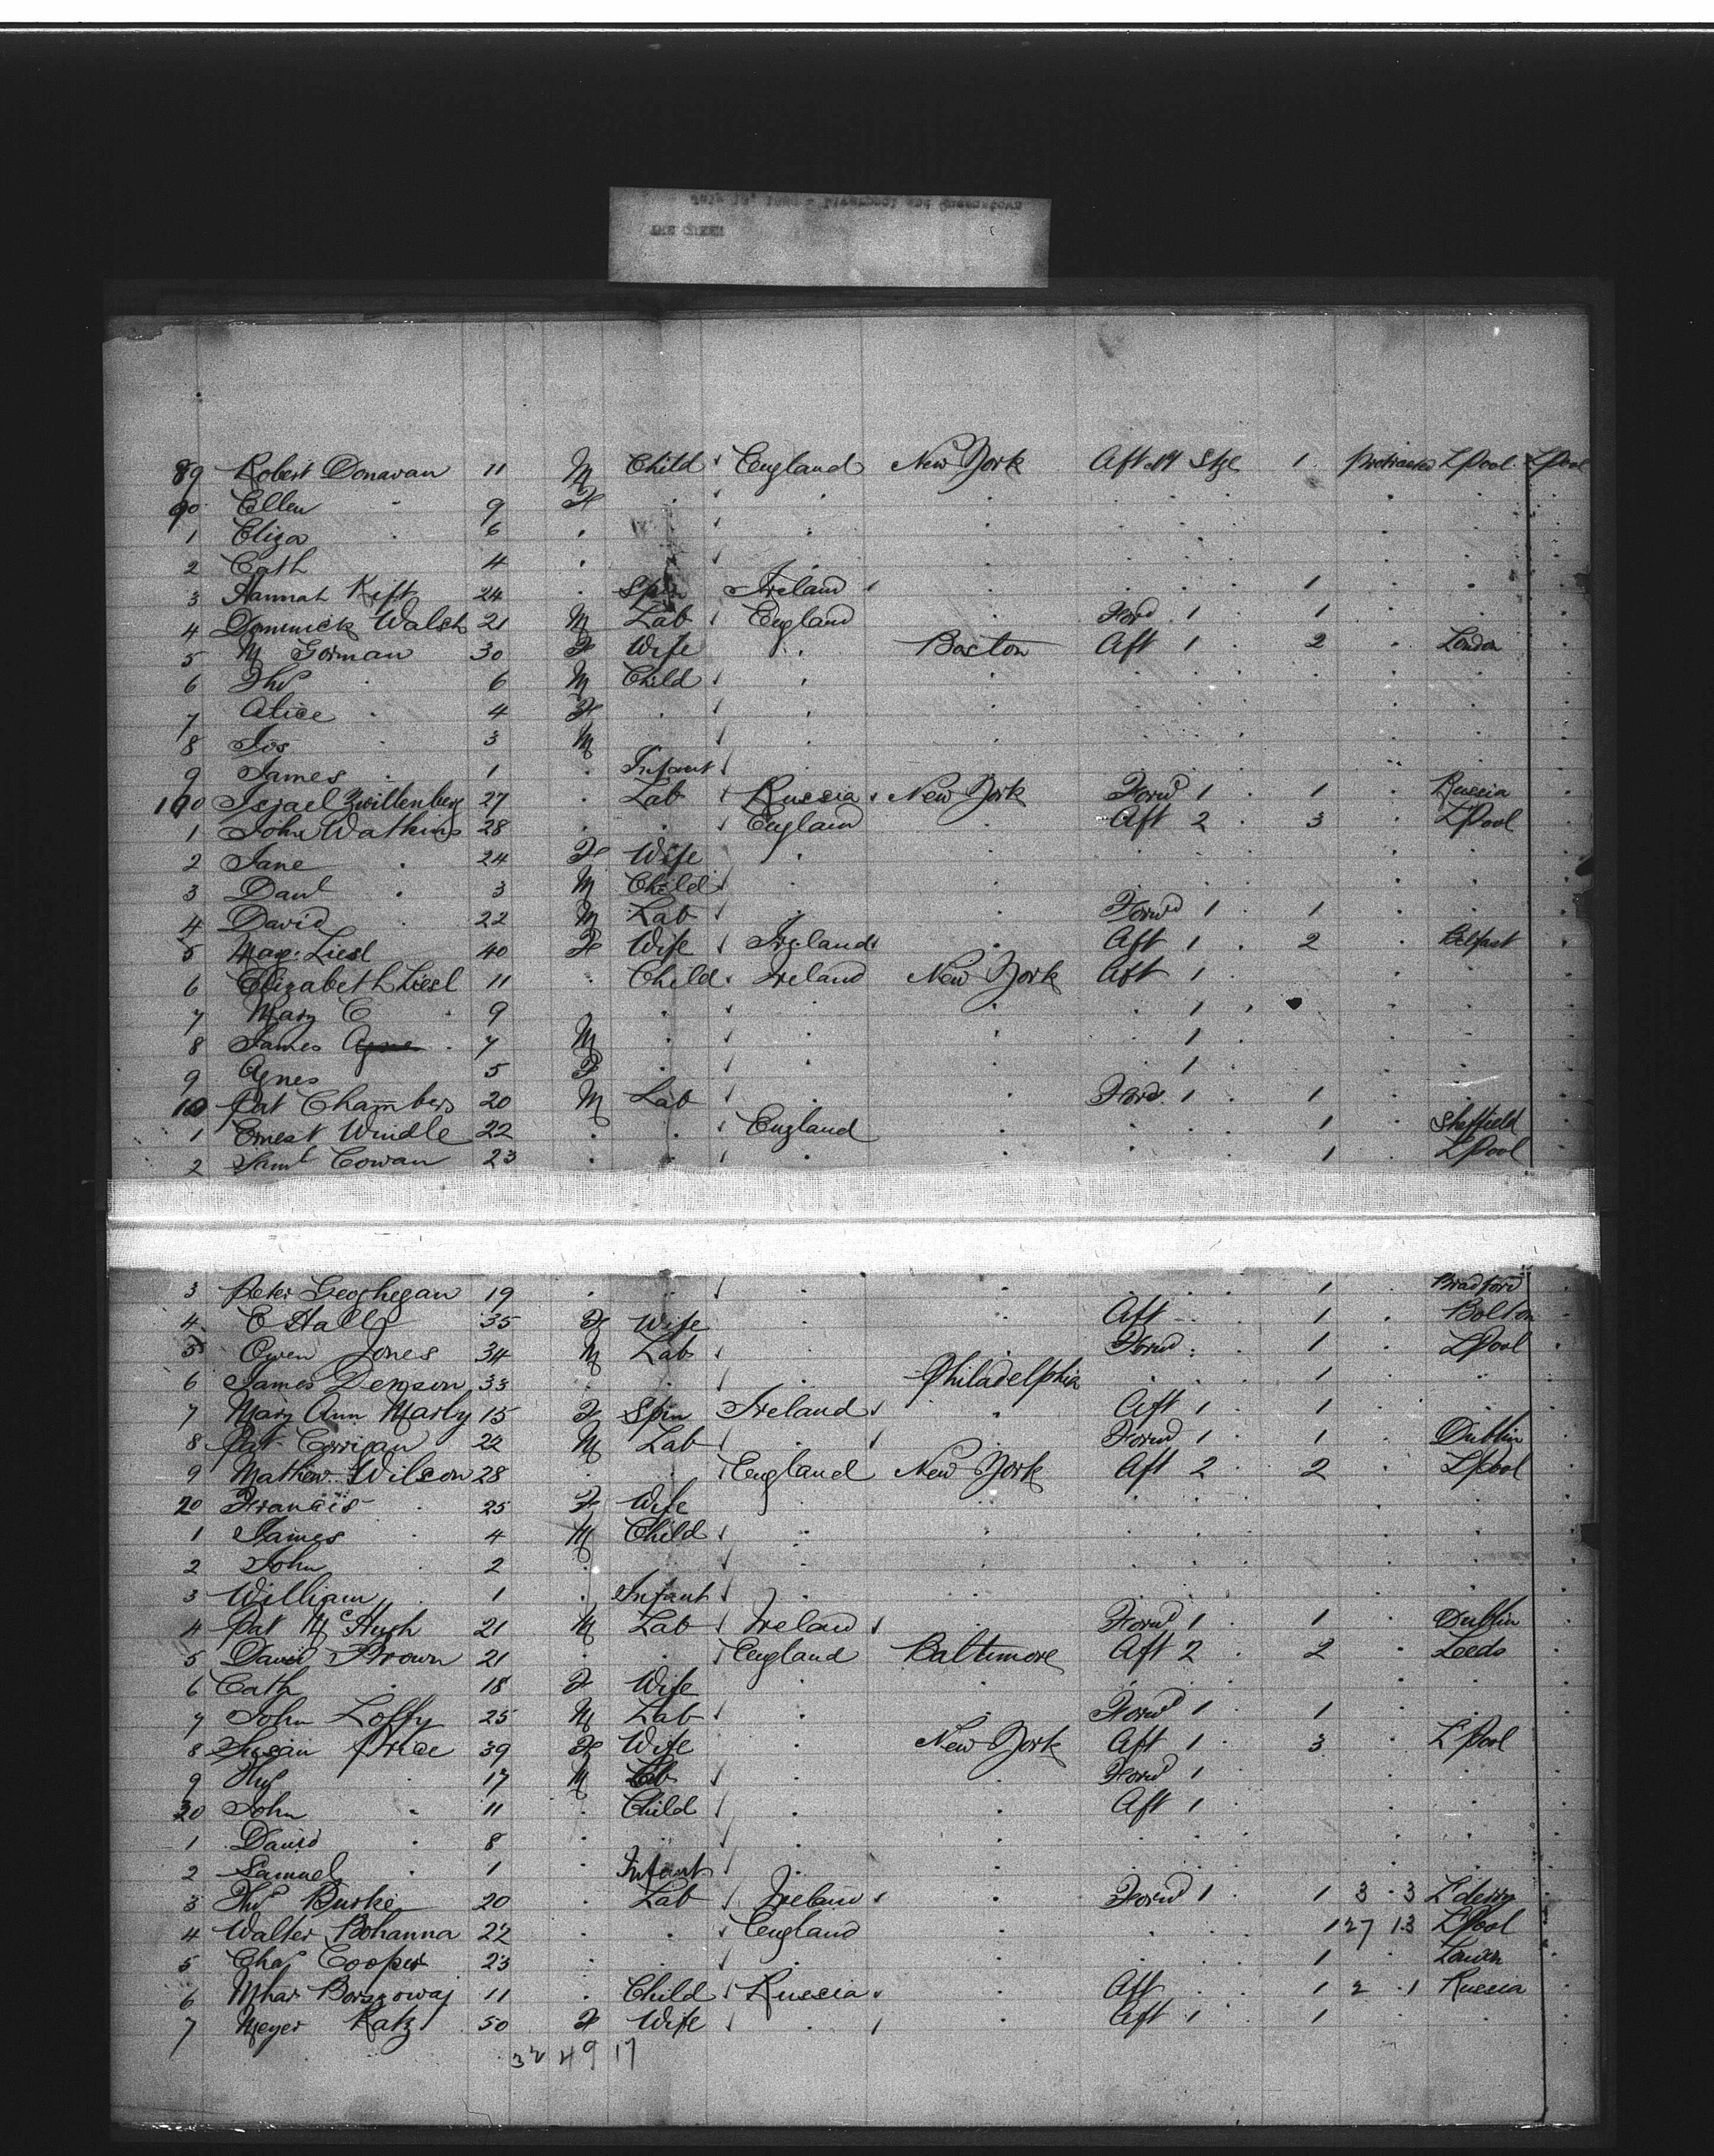 89 Robert Donavan 11 M Child England New York Aft 14 Stge 1 Protracted LPool LPool
90 Ellen " 9 F
1 Eliza " 6 "
2 Cath 4 "
3 Hannah Kift 24 " Spin Ireland 1
4 Dominick Walsh 21 M Lab England Ford 1 1
5 M Gorman 30 F Wife " Boston Aft 1 2 London
6 Thos " 6 M Child "
7 Alice " 4 F "
8 Jos " 3 M
9 James " 1 " Infant
100 Isjael Zwillenberg 27 " Lab Russia New York Forwd 1 1 Russia
1 John Watkins 28 " " England Aft 2 3 LPool
2 Jane " 24 F Wife "
3 Danl " 3 M Child "
4 David " 22 M Lab " Forwd 1 1
5 Mag. Liesl 40 F Wife Ireland " Aft 1 2 Belfast
6 Elizabeth Liesl 11 " Child Ireland New York Aft 1
7 Mary C " 9 " 1
8 James " 7 M " 1
9 Agnes 5 F " 1
10 Pat Chambers 20 M Lab " Ford 1 1
1 Ernest Windle 22 " " England 1 Sheffield
2 Saml Cowan 23 " " " 1 LPool
3 Peter Geoghegan 19 " 1 Bradford
4 E Hall 35 F Wife Aft 1 Bolton
5 Owen Jones 34 M Lab " Forwd 1 LPool
6 James Denson 33 " " Philadelphia " 1 "
7 Mary Ann Marly 15 F Spin Ireland " Aft 1 1
8 Pat Corrigan 22 M Lab " Forwd 1 1 Dublin
9 Mathew Wilson 28 " " England New York Aft 2 2 LPool
20 Francis " 25 F Wife
1 James " 4 M Child "
2 John " 2 "
3 William " 1 " Infant "
4 Pat McHugh 21 M Lab Ireland " Forwd 1 1 Dublin
5 David Brown 21 " " England Baltimore Aft 2 2 Leeds
6 Cath " 18 F Wife "
7 John Loffy 25 M Lab " Forwd 1 1
8 Susan Price 39 F Wife New York Aft 1 3 LPool
9 17 M Lab " Forwd 1
30 John " 11 " Child " Aft 1
1 David " 8 "
2 Samuel " 1 " Infant "
3 Thos Burke 20 " Lab Ireland " Forwd 1 1 3 3 L'derry
4 Walter Bohanna 22 " " England 1 27 13 LPool
5 Chas Cooper 23 " " 1
6 Mhar Borszowaj 11 " Child Russia " Aft 1 2 1 Russia
7 Meyer Katz 50 F Wife " Aft 1 1
32 49 17